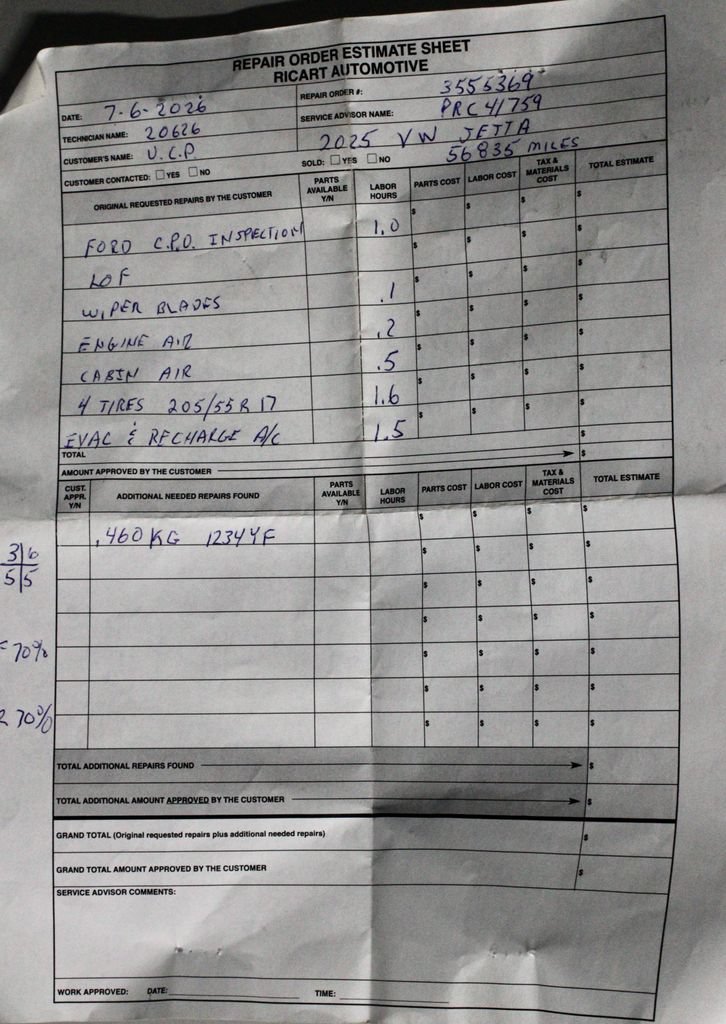 REPAIR ORDER ESTIMATE SHEET
RICART AUTOMOTIVE
DATE: 7-6-2026
REPAIR ORDER #: 3555369
TECHNICIAN NAME: 20626
SERVICE ADVISOR NAME: PRC41759
CUSTOMER'S NAME: U.C.P
2025 VW JETTA
CUSTOMER CONTACTED: YES NO
SOLD: YES NO
56835 MILES
ORIGINAL REQUESTED REPAIRS BY THE CUSTOMER
PARTS AVAILABLE Y/N
LABOR HOURS
PARTS COST
LABOR COST
TAX & MATERIALS COST
TOTAL ESTIMATE
FORD C.P.O. INSPECTION 1.0 $ $ $ $
LOF $ $ $ $
WIPER BLADES .1 $ $ $ $
ENGINE AIR .2 $ $ $ $
CABIN AIR .5 $ $ $ $
4 TIRES 205/55R17 1.6 $ $ $ $
EVAC & RECHARGE A/C 1.5 $ $ $ $
TOTAL $
AMOUNT APPROVED BY THE CUSTOMER $
CUST. APPR. Y/N
ADDITIONAL NEEDED REPAIRS FOUND
PARTS AVAILABLE Y/N
LABOR HOURS
PARTS COST
LABOR COST
TAX & MATERIALS COST
TOTAL ESTIMATE
.460KG 1234YF $ $ $ $
3|6
5|5
$ $ $ $
$ $ $ $
$ $ $ $
70% $ $ $ $
$ $ $ $
70% $ $ $ $
TOTAL ADDITIONAL REPAIRS FOUND $
TOTAL ADDITIONAL AMOUNT APPROVED BY THE CUSTOMER $
GRAND TOTAL (Original requested repairs plus additional needed repairs) $
GRAND TOTAL AMOUNT APPROVED BY THE CUSTOMER $
SERVICE ADVISOR COMMENTS:
WORK APPROVED: DATE: TIME: